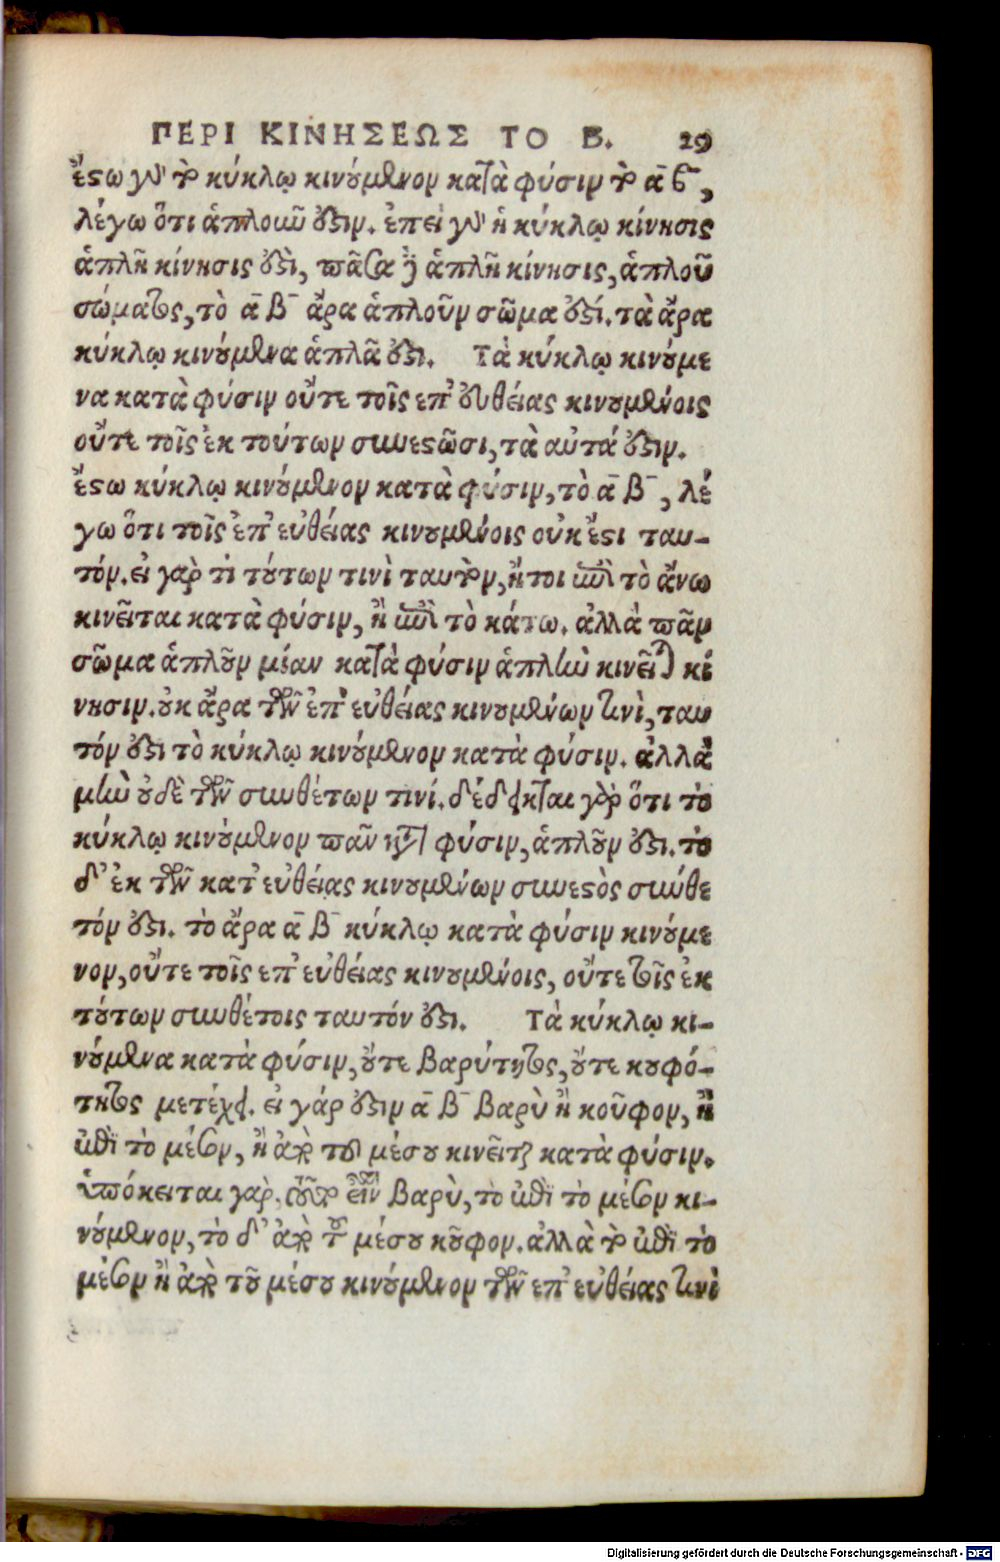 ΠΕΡΙ ΚΙΝΗΣΕΩΣ ΤΟ Β. 29
ἔςω γὸ τὸ κύκλῳ κινούμενον κατὰ φύσιν τὸ α β,
λέγω ὅτι ἁπλοῦν ἐςιν. ἐπεὶ γὸ ἡ κύκλῳ κίνησις
ἁπλῆ κίνησις ἐςὶ, πᾶσα δὲ ἁπλῆ κίνησις, ἁπλοῦ
σώματος, τὸ α β ἄρα ἁπλοῦν σῶμα ἐςί. τὰ ἄρα
κύκλῳ κινούμενα ἁπλᾶ ἐςι. Τὰ κύκλῳ κινούμε
να κατὰ φύσιν οὔτε τοῖς επ' εὐθείας κινουμένοις
οὔτε τοῖς ἐκ τούτων συνεςῶσι, τὰ αὐτά ἐςιν.
ἔςω κύκλῳ κινούμενον κατὰ φύσιν, τὸ α β, λέ
γω ὅτι τοῖς ἐπ' εὐθείας κινουμένοις οὐκ ἔςι ταυ-
τόν. εἰ γαρ τι τούτων τινὶ ταυτὸν, ἤτοι ἐπὶ τὸ ἄνω
κινεῖται κατὰ φύσιν, ἢ ἐπὶ τὸ κάτω. ἀλλὰ πᾶν
σῶμα ἁπλοῦν μίαν κατὰ φύσιν ἁπλὴν κινεῖται κί
νησιν. οὐκ ἄρα τῶν ἐπ' εὐθείας κινουμένων τινὶ, ταυ
τόν ἐςι τὸ κύκλῳ κινούμενον κατὰ φύσιν. ἀλλὰ
μὴν οὐδὲ τῶν συνθέτων τινί. δέδεικται γὰρ ὅτι τὸ
κύκλῳ κινούμενον πᾶν κατὰ φύσιν, ἁπλοῦν ἐςι. τὸ
δ' ἐκ τῶν κατ' εὐθείας κινουμένων συνεςὸς σύνθε
τόν ἐςι. τὸ ἄρα α β κύκλῳ κατὰ φύσιν κινούμε
νον, οὔτε τοῖς επ' εὐθείας κινουμένοις, οὔτε τοῖς ἐκ
τούτων συνθέτοις ταυτόν ἐςι. Τὰ κύκλῳ κι-
νούμενα κατὰ φύσιν, οὔτε βαρύτητος, οὔτε κουφό-
τητος μετέχει. εἰ γάρ ἐςιν α β βαρὺ ἢ κοῦφον, ἢ
ἐπὶ τὸ μέσον, ἢ ἀπὸ τοῦ μέσου κινεῖται κατὰ φύσιν.
ὑπόκειται γαρ, τοῦτο εἶναι βαρὺ, τὸ ἐπὶ τὸ μέσον κι-
νούμενον, τὸ δ' ἀπὸ τοῦ μέσου κοῦφον. ἀλλὰ τὸ ἐπὶ τὸ
μέσον ἢ ἀπὸ τοῦ μέσου κινούμενον τῶν επ' εὐθείας τινὶ
Digitalisierung gefördert durch die Deutsche Forschungsgemeinschaft - DFG